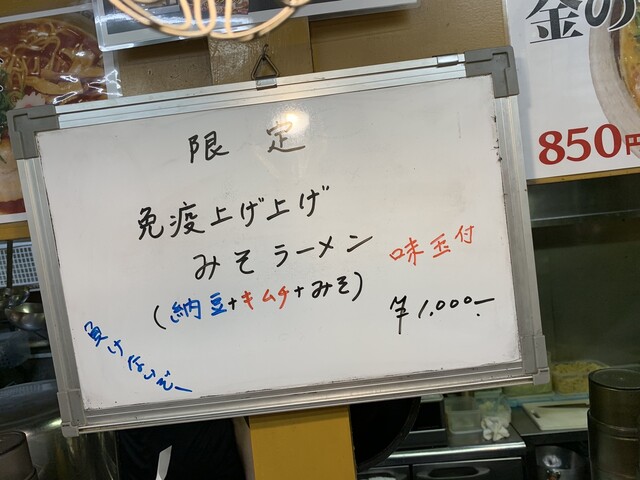 金の
850円
限定
免疫上げ上げ
みそラーメン 味玉付
(納豆+キムチ+みそ)
¥1,000-
負けないぞー